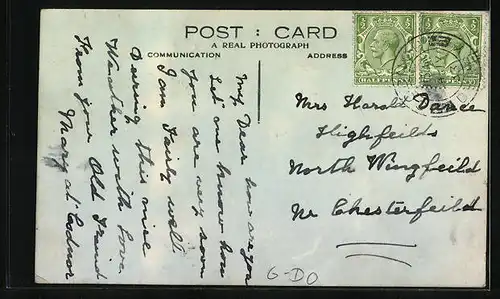 POST : CARD
A REAL PHOTOGRAPH
COMMUNICATION
ADDRESS
My Dear how are you
Let me know how
you are very soon
I am Fairly well
During this nice
Weather with Love
From your Old Freind
Mary at
Mrs Harold Dance
Highfeilds
North Wingfeild
Nr Chesterfeild
G-DO